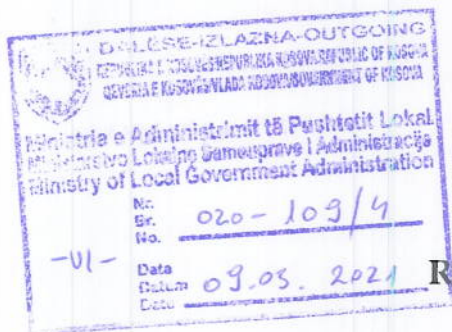 DALËSE-IZLAZNA-OUTGOING
REPUBLIKA E KOSOVËS/REPUBLIKA KOSOVA/REPUBLIC OF KOSOVA
QEVERIA E KOSOVËS/VLADA KOSOVA/GOVERNMENT OF KOSOVA
Ministria e Administrimit të Pushtetit Lokal
Ministarstvo Lokalne Samouprave i Administracije
Ministry of Local Government Administration
Nr.
Br.
No.
020-109/4
-VI-
Data
Datum
Date
09.03.2021
R